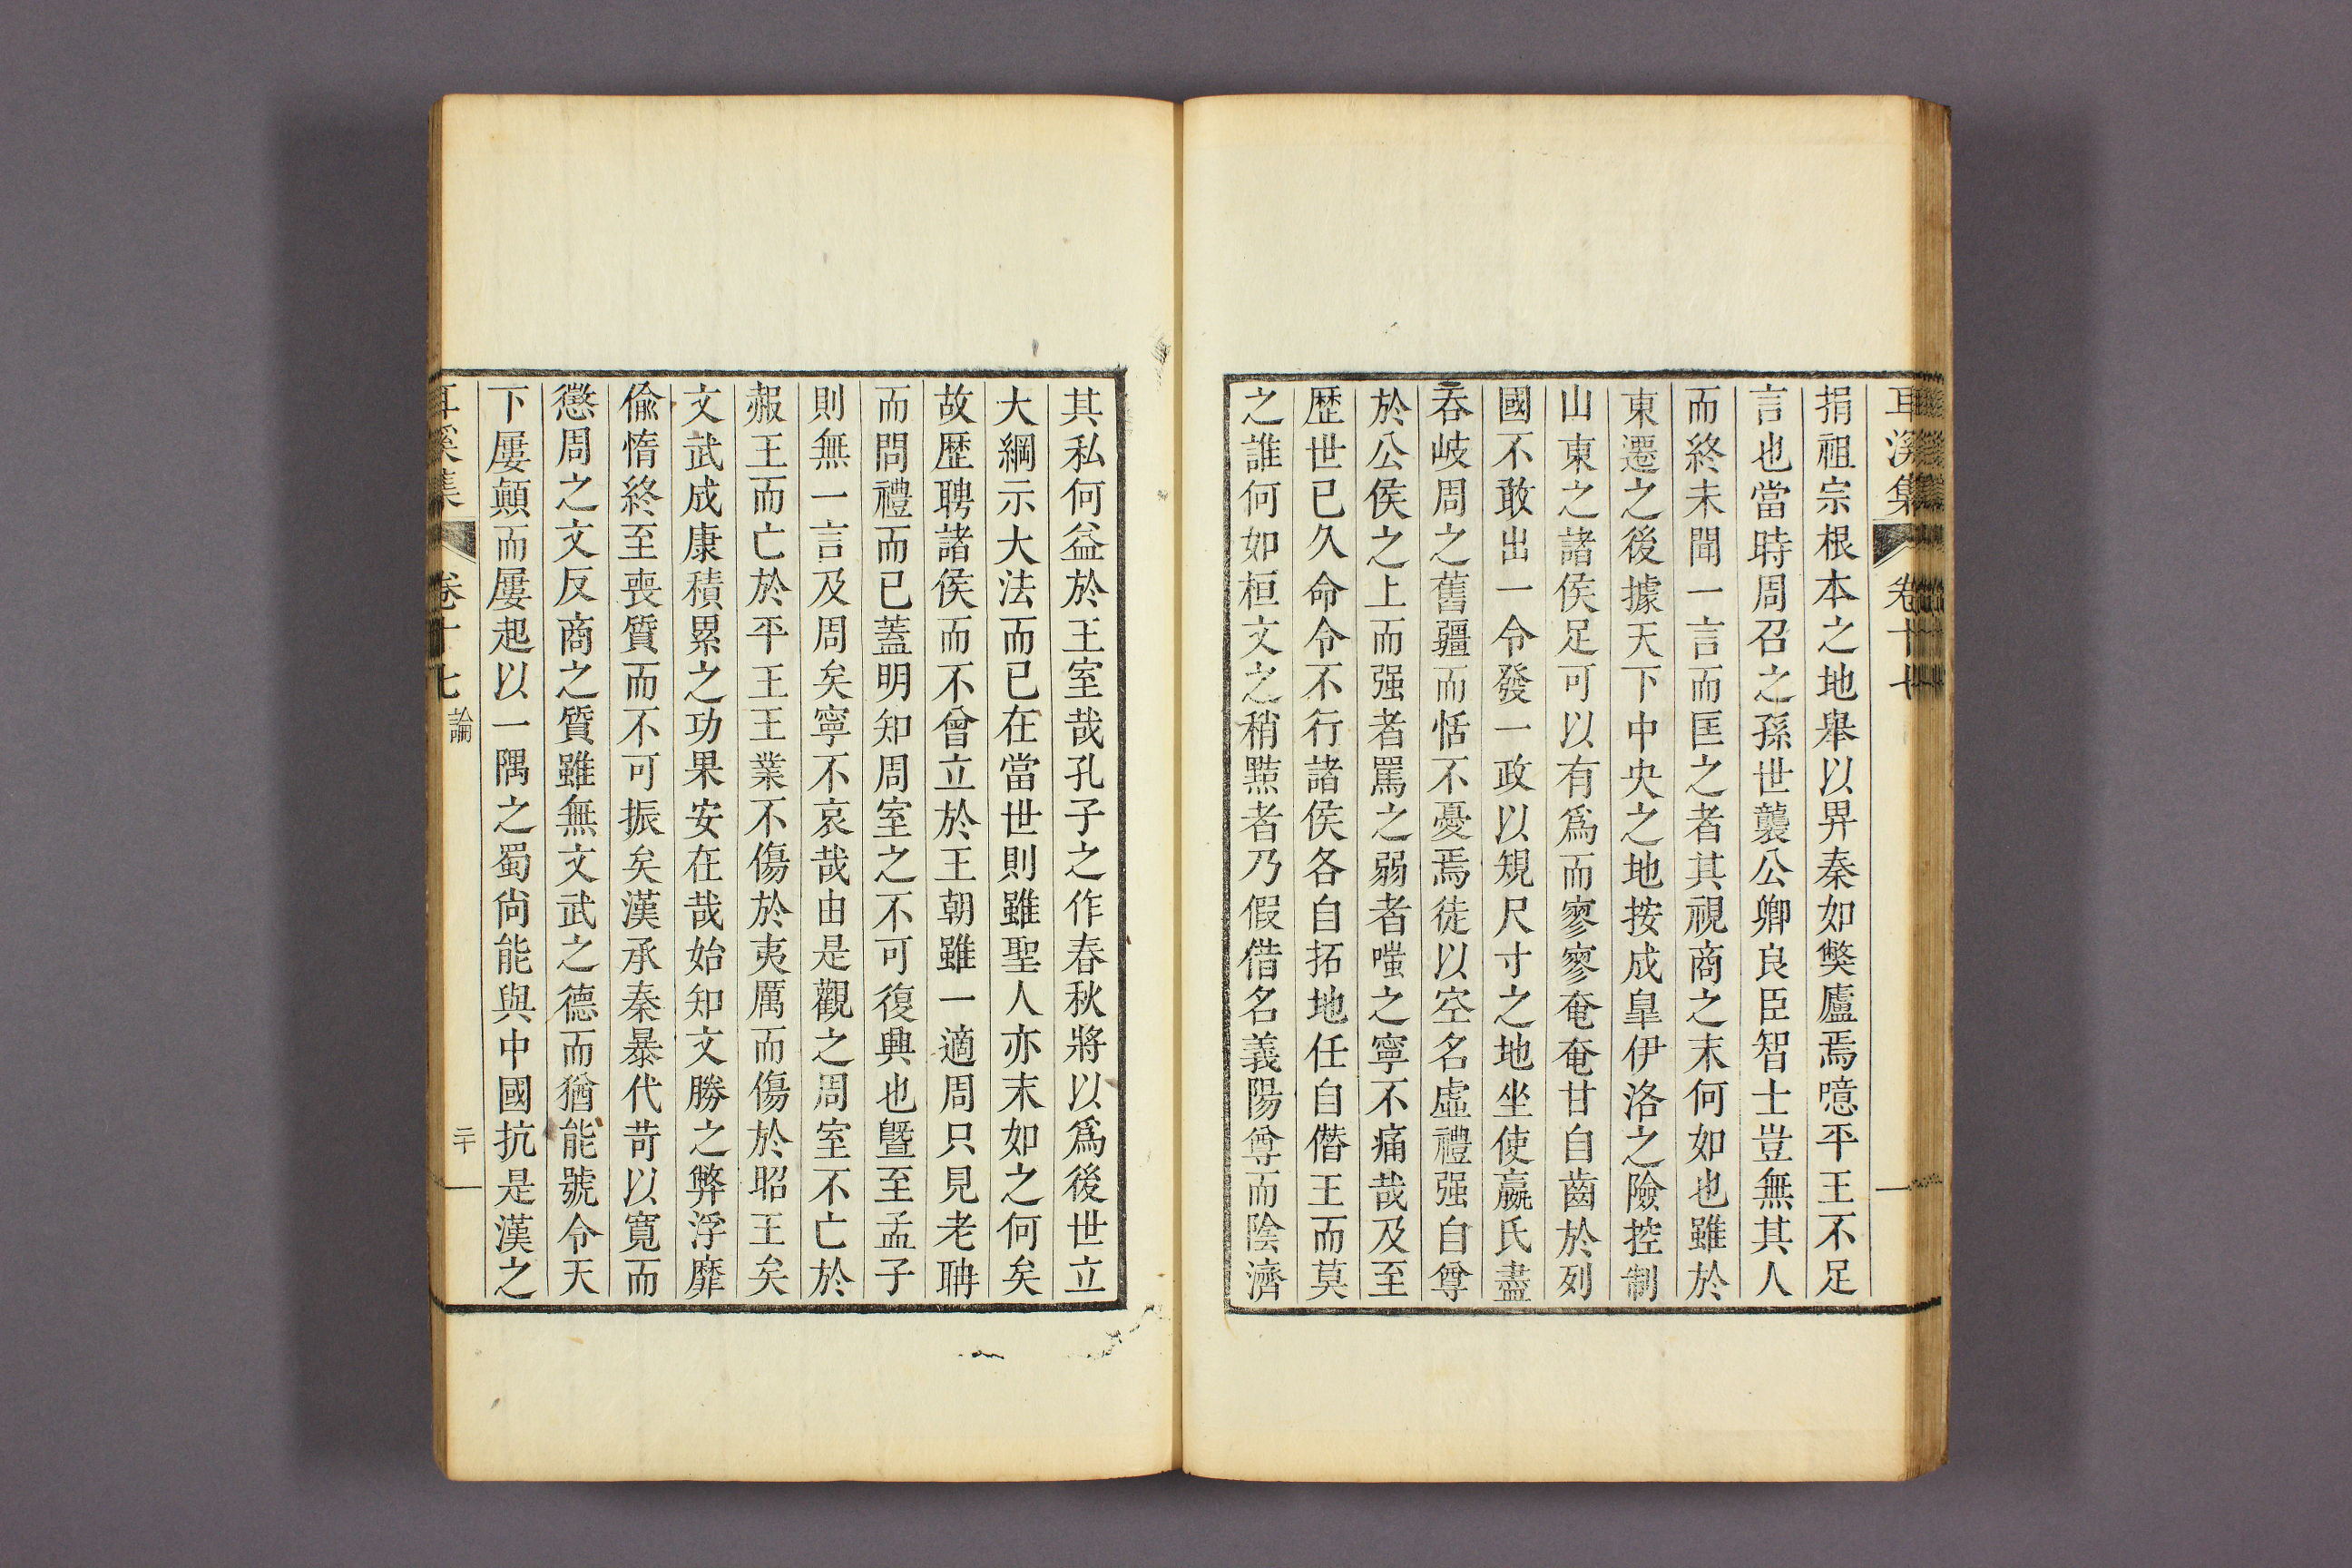 耳溪集 卷十七
捐祖宗根本之地舉以畀秦如獘廬焉噫平王不足
言也當時周召之孫世襲公卿良臣智士豈無其人
而終未聞一言而匡之者其視商之末何如也雖於
東遷之後據天下中央之地按成皐伊洛之險控制
山東之諸侯足可以有爲而寥寥奄奄甘自齒於列
國不敢出一令發一政以規尺寸之地坐使嬴氏盡
吞岐周之舊疆而恬不憂焉徒以空名虛禮强自尊
於公侯之上而强者罵之弱者嗤之寧不痛哉及至
歷世已久命令不行諸侯各自拓地任自僭王而莫
之誰何如桓文之稍黠者乃假借名義陽尊而陰濟
其私何益於王室哉孔子之作春秋將以爲後世立
大綱示大法而已在當世則雖聖人亦末如之何矣
故歷聘諸侯而不曾立於王朝雖一適周只見老聃
而問禮而已蓋明知周室之不可復興也曁至孟子
則無一言及周矣寧不哀哉由是觀之周室不亡於
赧王而亡於平王王業不傷於夷厲而傷於昭王矣
文武成康積累之功果安在哉始知文勝之弊浮靡
偸惰終至喪質而不可振矣漢承秦暴代苛以寬而
懲周之文反商之質雖無文武之德而猶能號令天
下屢顚而屢起以一隅之蜀尙能與中國抗是漢之
耳溪集 卷十七 論 二十